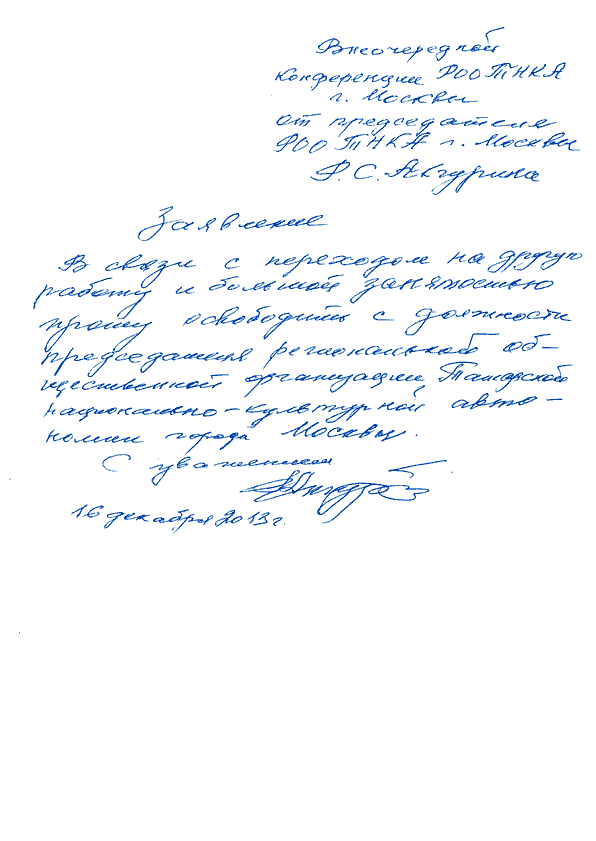 Внеочередной
конференции РОО ТНКА
г. Москвы
от председателя
РОО ТНКА г. Москвы
Р.С. Акчурина
Заявление
В связи с переходом на другую
работу и большой занятостью
прошу освободить с должности
председателя региональной об-
щественной организации Татарской
национально-культурной авто-
номии города Москвы.
С уважением
16 декабря 2013 г.